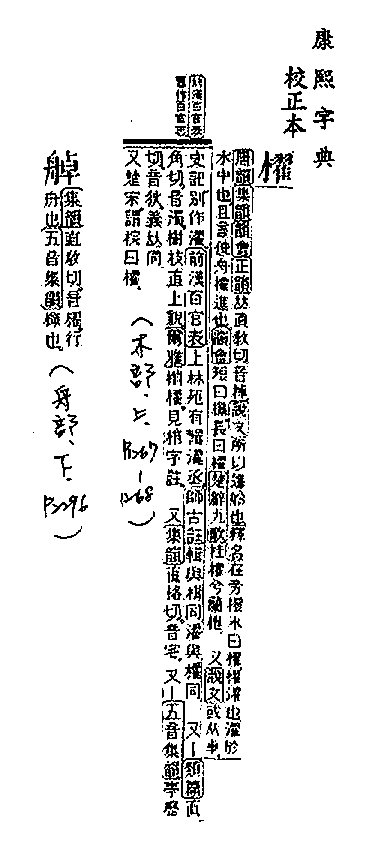 康熙字典
校正本
櫂
唐韻集韻韻會正韻𠀤直敎切音棹說文所以進船也釋名在旁撥水曰櫂櫂濯也濯於
水中也且言使舟櫂進也韻會短曰楫長曰櫂楚辭九歌桂櫂兮蘭枻 又說文或从卓
史記別作濯前漢百官表上林苑有輯濯丞師古註輯與楫同濯與櫂同 又類篇直
角切音濁樹枝直上貌爾雅梢櫂見梢字註 又集韻直格切音宅 又五音集韻亭歷
切音狄義𠀤同
又楚宋謂梡曰櫂
(木部、上、P.267-268)
前漢百官表
䑲
集韻直敎切音櫂行
舟也五音集韻櫂也
(舟部、下、P.2296)